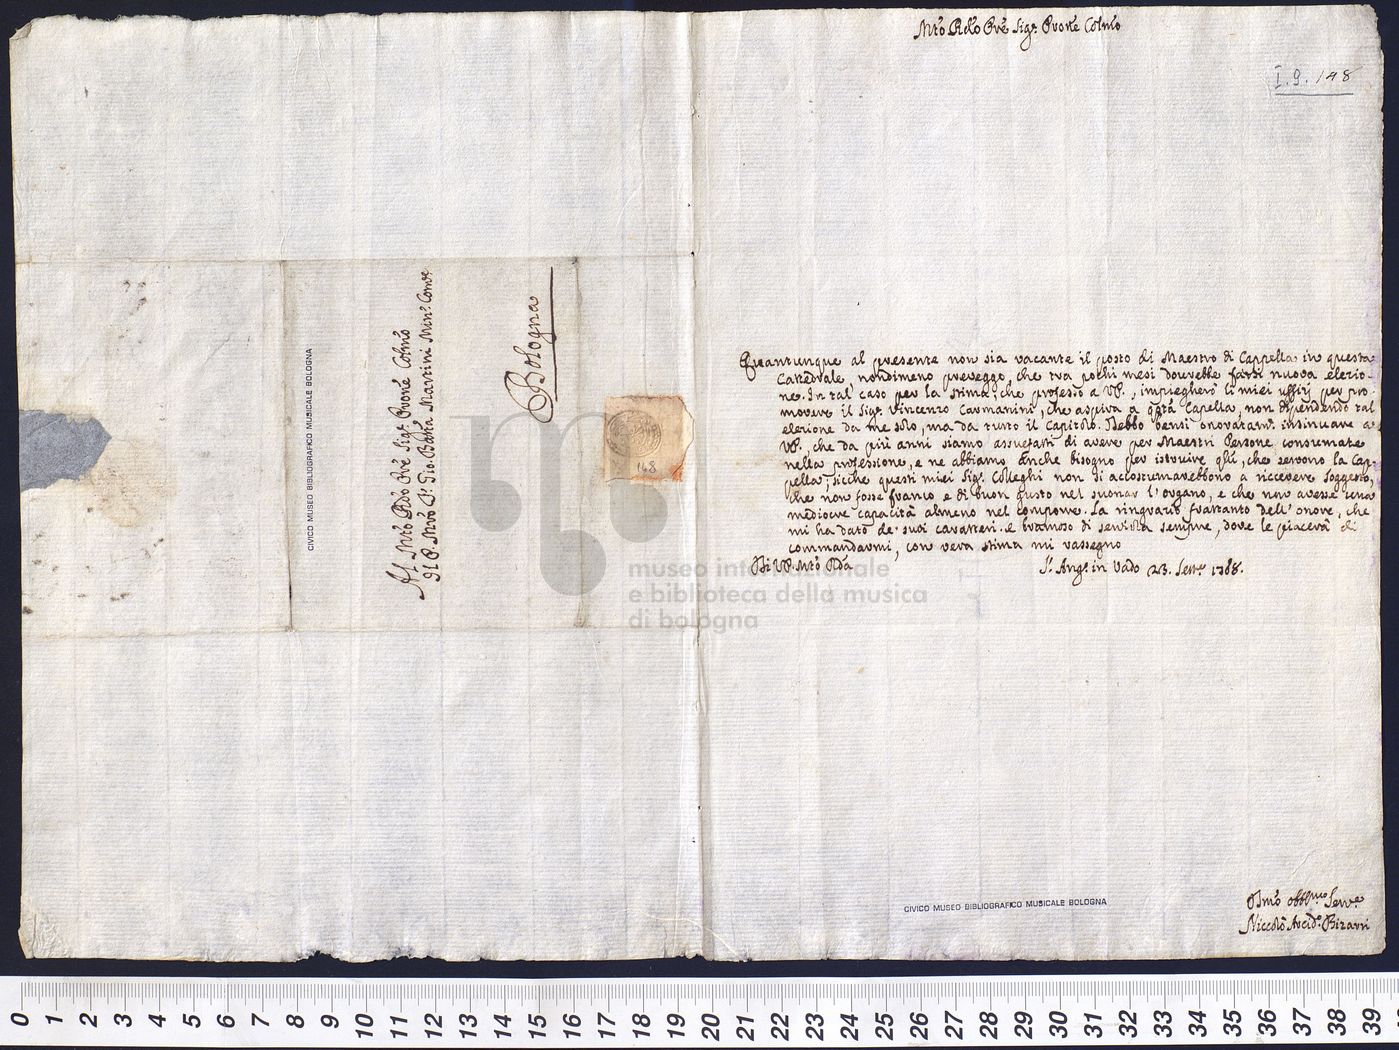 Mto Rdo Pre Sigr. Prone Colmo
I. 9. 148
Quantunque al presente non sia vacante il posto di Maestro di Cappella in questa
Cattedrale, nondimeno preveggo, che tra pochi mesi dovrebbe farsi nuova elezio-
ne. In tal caso per la stima, che professo a VP., impiegherò li miei uffizj per pro-
movere il Sigr. Vincenzo Carmanini, che aspira a qsta Capella, non dipendendo tal
elezione da me solo, ma da tutto il Capitolo. Debbo bensì onoratamt. insinuare a
VP., che da più anni siamo assuefatti di avere per Maestri Persone consumate
nella professione, e ne abbiamo anche bisogno per istruire qli, che servono la Cap-
pella; sicche questi miei Sigri. Colleghi non si accostumarebbono a riccevere soggetto,
che non fosse franco e di buon gusto nel suonar l'organo, e che non avesse una
mediocre capacità almeno nel comporre. La ringrazio frattanto dell'onore, che
mi ha dato de' suoi caratteri, e bramoso di servirla sempre, dove le piacerà di
commandarmi, con vera stima mi rassegno
Di VP. Mto Rda
S. Ang. in Vado 23. Sette. 1768.
Obbmo Serve
Niccolò Arcid. Bizarri
Al Mto Rdo Pre Sigr. Prone Colmo
Il P. Mro F. Gio. Batta Martini Minr. Conve
Bologna
148
CIVICO MUSEO BIBLIOGRAFICO MUSICALE BOLOGNA
CIVICO MUSEO BIBLIOGRAFICO MUSICALE BOLOGNA
museo internazionale
e biblioteca della musica
di bologna
0 1 2 3 4 5 6 7 8 9 10 11 12 13 14 15 16 17 18 19 20 21 22 23 24 25 26 27 28 29 30 31 32 33 34 35 36 37 38 39